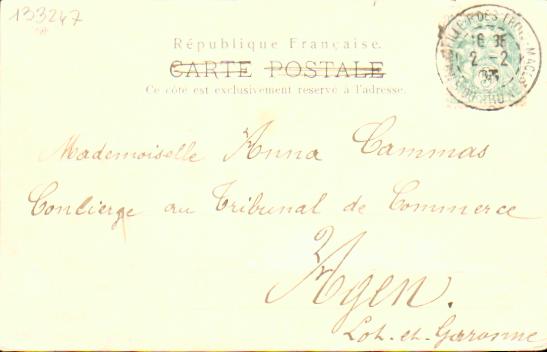 133247
République Française.
CARTE POSTALE
Ce côté est exclusivement reservé à l'adresse.
MARSEILLE R. DES TROIS MAGES
16 35
2 - 2
Mademoiselle Anna Cammas
Concierge au Tribunal de Commerce
Agen.
Lot-et-Garonne